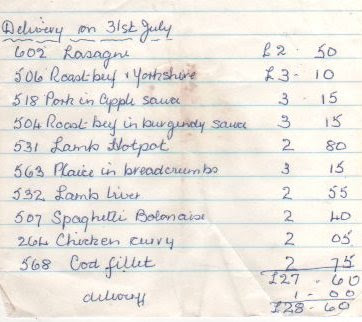 Delivery on 31st July
602 Lasagne £2 - 50
506 Roast beef & Yorkshire £3 - 10
518 Pork in Apple sauce 3 - 15
504 Roast beef in burgundy sauce 3 15
531 Lamb Hotpot 2 80
563 Plaice in breadcrumbs 3 15
532 Lamb liver 2 55
507 Spaghetti Bolonaise 2 40
264 Chicken curry 2 05
568 Cod fillet 2 75
£27 - 60
delivery 1 - 00
£28 - 60